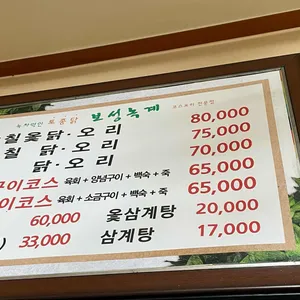 녹차먹인 토종닭 보성녹계 코스요리 전문점
칠옻닭·오리 80,000
칠 닭·오리 75,000
닭·오리 70,000
구이코스 육회+양념구이+백숙+죽 65,000
이코스 육회+소금구이+백숙+죽 65,000
60,000 옻삼계탕 20,000
) 33,000 삼계탕 17,000